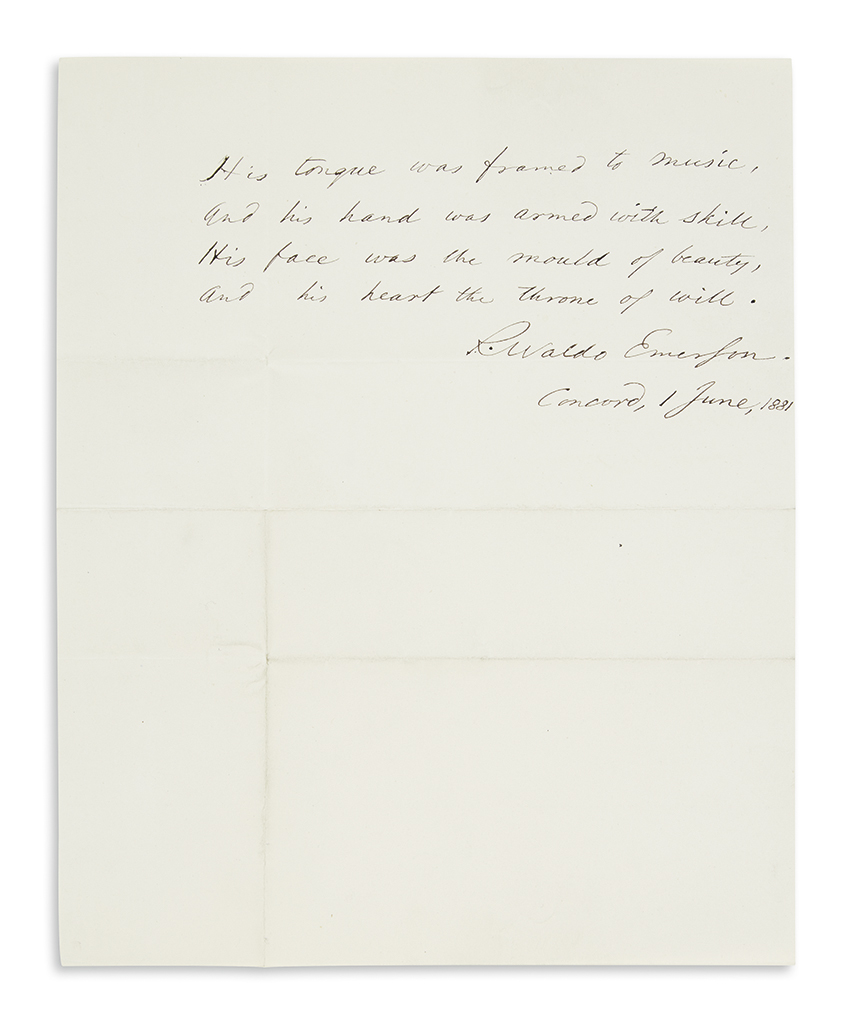 His tongue was framed to music,
And his hand was armed with skill,
His face was the mould of beauty,
And his heart the throne of will.
R. Waldo Emerson.
Concord, 1 June, 1881